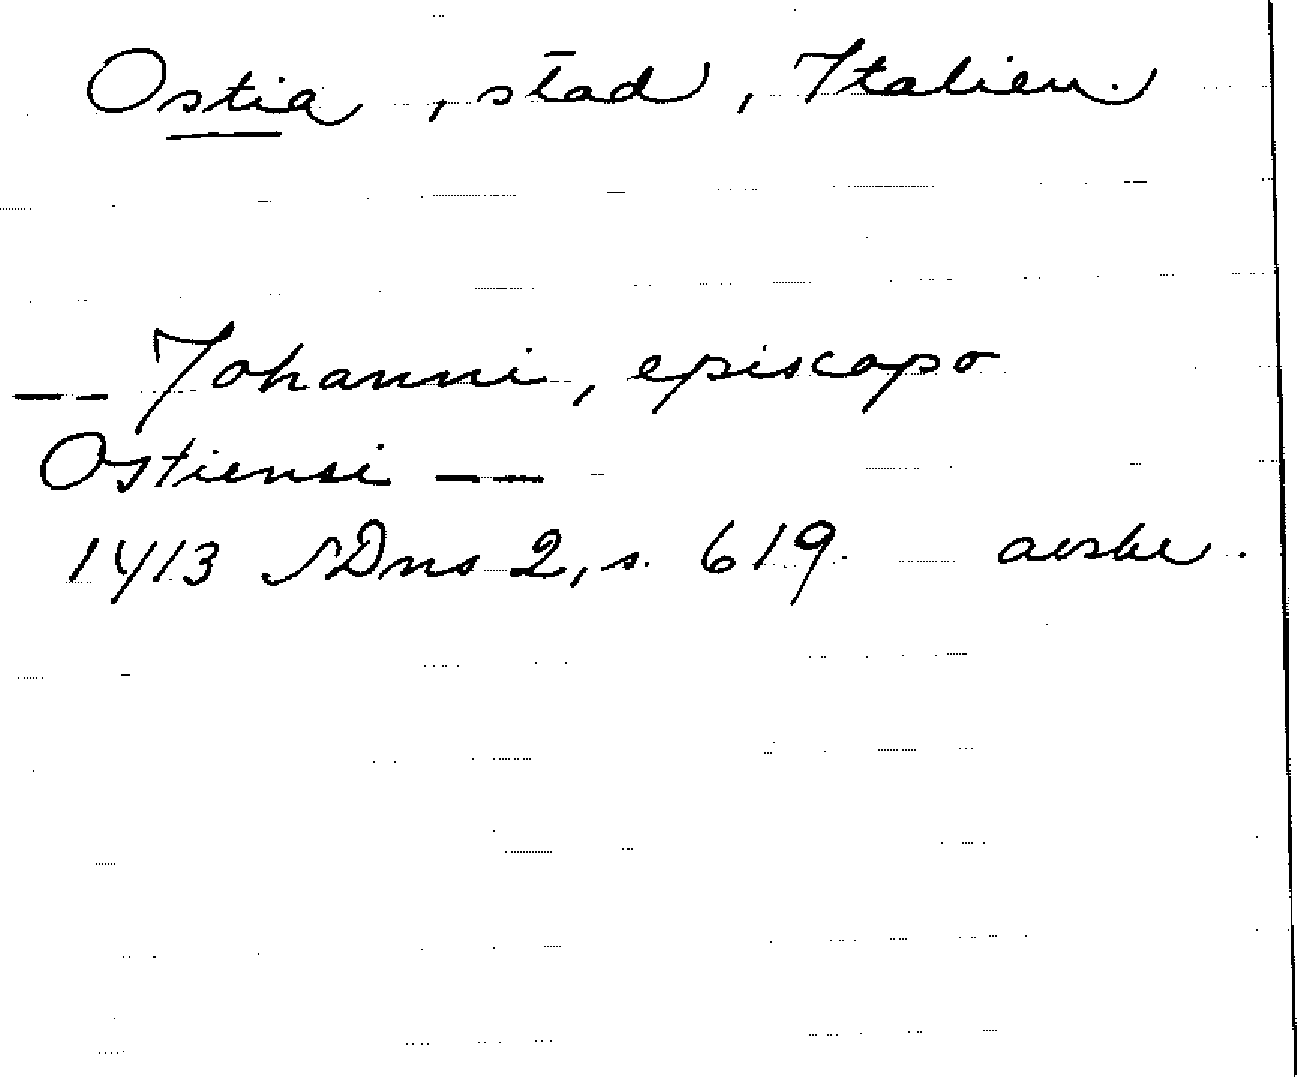 Ostia, stad, Italien.
— — Johanni, episcopo
Ostiensi — —
1413 SDns 2, s. 619. avskr.